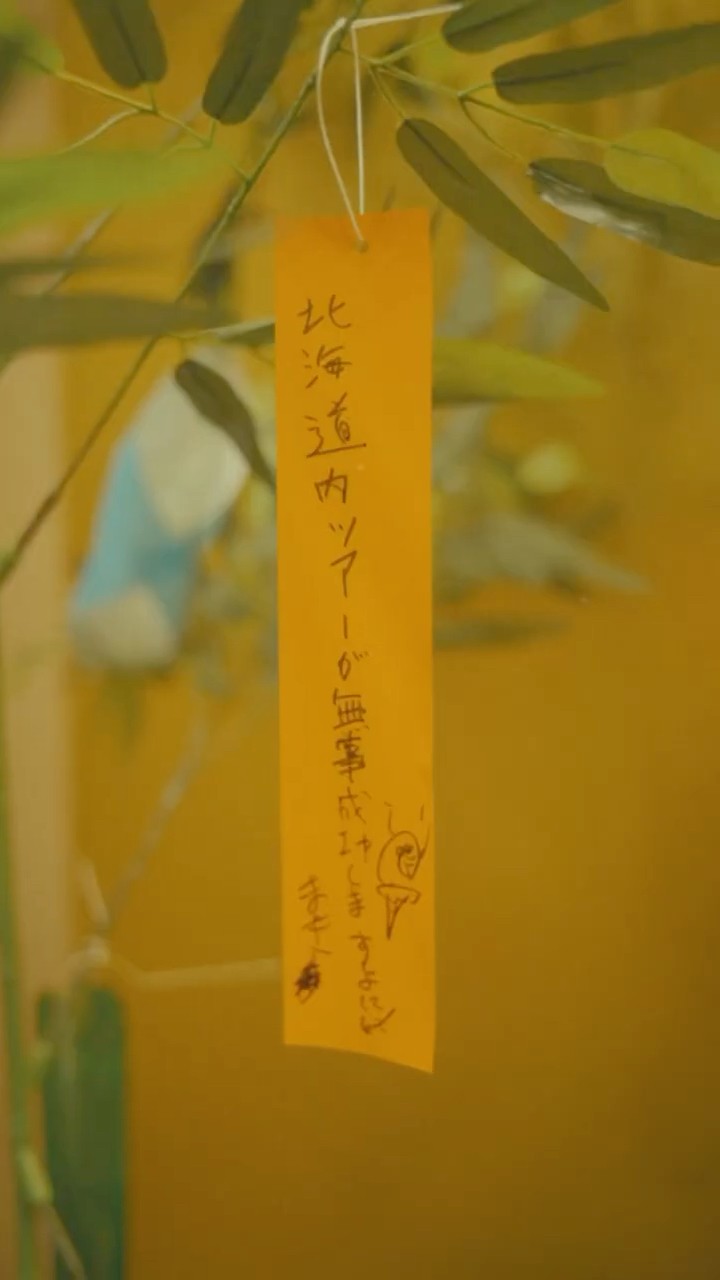 北海道内ツアーが無事成功しますよに